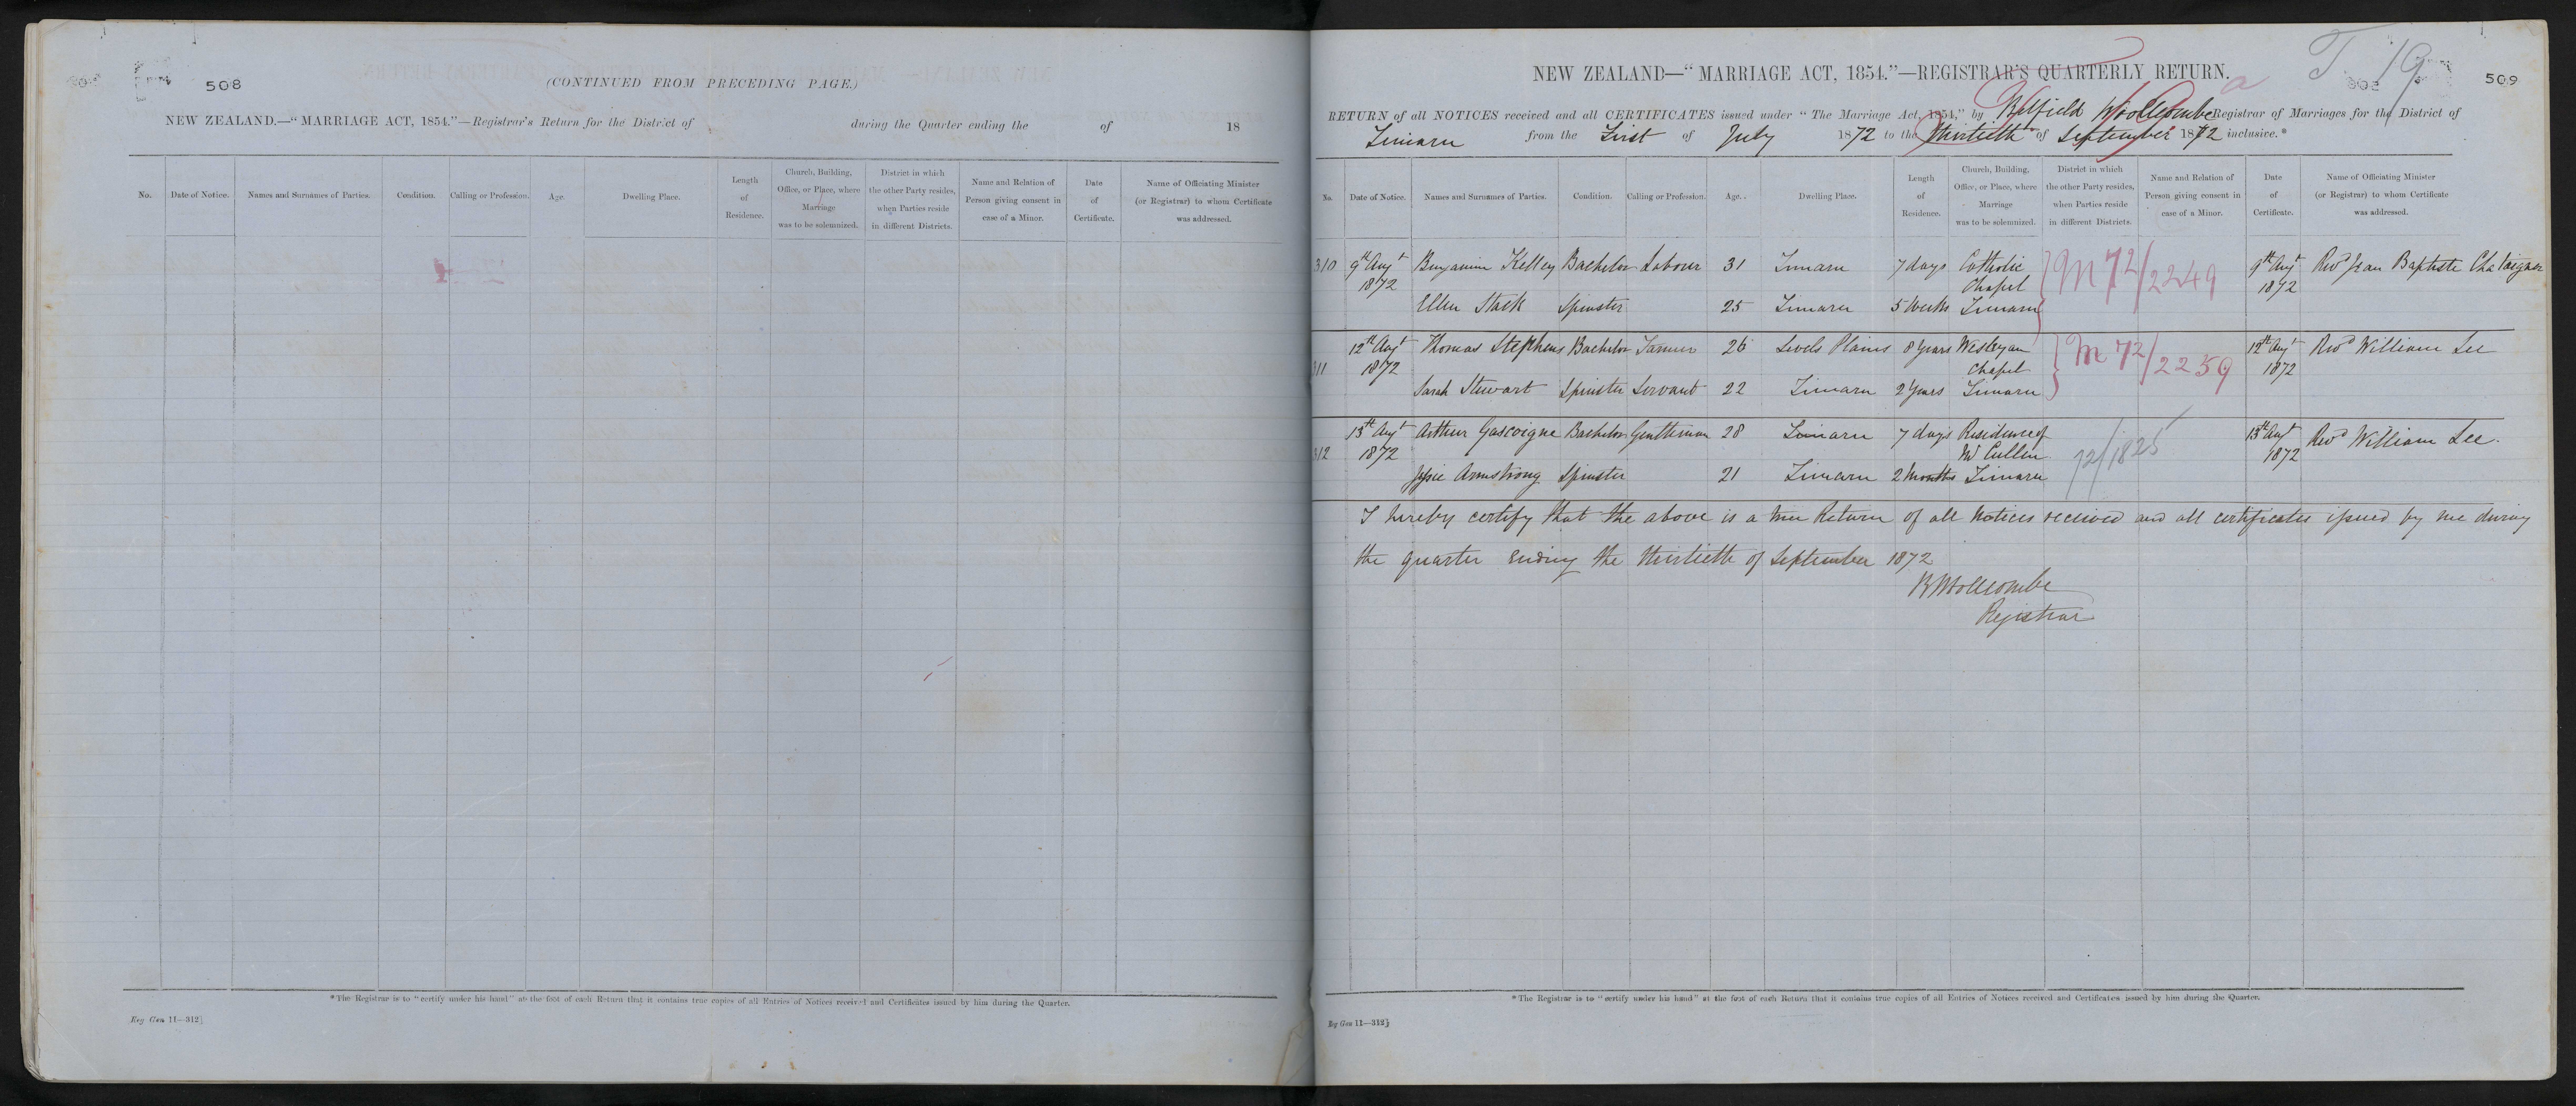 508
(CONTINUED FROM PRECEDING PAGE.)
NEW ZEALAND.—"MARRIAGE ACT, 1854."—Registrar's Return for the District of during the Quarter ending the of 18
No. Date of Notice. Names and Surnames of Parties. Condition. Calling or Profession. Age. Dwelling Place. Length of Residence. Church, Building, Office, or Place, where Marriage was to be solemnized. District in which the other Party resides, when Parties reside in different Districts. Name and Relation of Person giving consent in case of a Minor. Date of Certificate. Name of Officiating Minister (or Registrar) to whom Certificate was addressed.
* The Registrar is to "certify under his hand" at the foot of each Return that it contains true copies of all Entries of Notices received and Certificates issued by him during the Quarter.
Reg Gen 11—312]
T/19
509
NEW ZEALAND—"MARRIAGE ACT, 1854."—REGISTRAR'S QUARTERLY RETURN.
RETURN of all NOTICES received and all CERTIFICATES issued under "The Marriage Act, 1854," by Belfield Woollcombe Registrar of Marriages for the District of
Timaru from the First of July 1872 to the thirtieth of September 1872 inclusive.*
No. Date of Notice. Names and Surnames of Parties. Condition. Calling or Profession. Age. Dwelling Place. Length of Residence. Church, Building, Office, or Place, where Marriage was to be solemnized. District in which the other Party resides, when Parties reside in different Districts. Name and Relation of Person giving consent in case of a Minor. Date of Certificate. Name of Officiating Minister (or Registrar) to whom Certificate was addressed.
310 9th Augt 1872 Benjamin Kelley Bachelor Labour 31 Timaru 7 days Catholic Chapel M 72/2249 9th Augt 1872 Revd Jean Baptiste Chataigner
Ellen Stack Spinster 25 Timaru 5 Weeks Timaru
311 12th Augt 1872 Thomas Stephens Bachelor Farmer 26 Levels Plains 8 Years Wesleyan Chapel M 72/2259 12th Augt 1872 Revd William Lee
Sarah Stewart Spinster Servant 22 Timaru 2 Years Timaru
312 13th Augt 1872 Arthur Gascoigne Bachelor Gentleman 28 Timaru 7 days Residence of Mr Cullen 72/1825 13th Augt 1872 Revd William Lee.
Jessie Armstrong Spinster 21 Timaru 2 Months Timaru
I hereby certify that the above is a true Return of all Notices received and all certificates issued by me during
the quarter ending the thirtieth of September 1872
B Woollcombe
Registrar
* The Registrar is to "certify under his hand" at the foot of each Return that it contains true copies of all Entries of Notices received and Certificates issued by him during the Quarter.
Reg Gen 11—312]